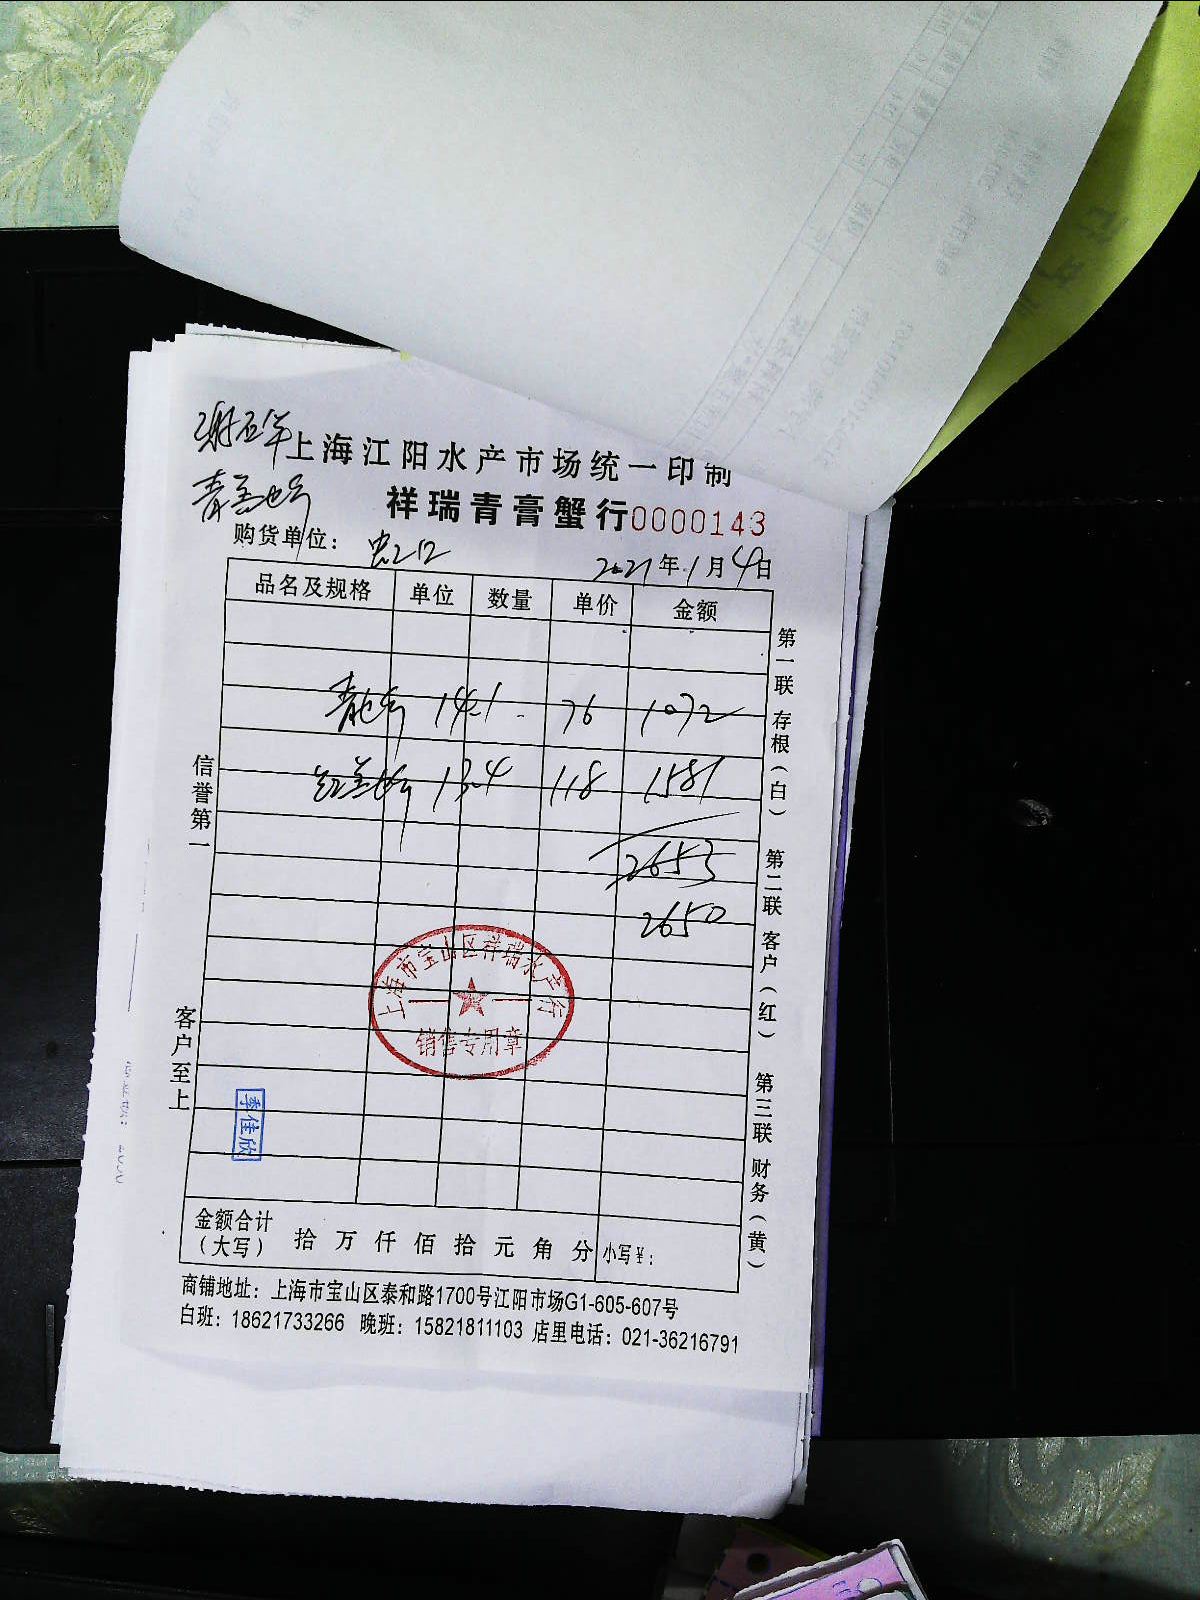 上海江阳水产市场统一印制
祥瑞青膏蟹行0000143
购货单位： 虹口 2021年1月4日
品名及规格 单位 数量 单价 金额
14.1 76 1072
13.4 118 1581
2653
2650
信誉第一
客户至上
第一联 存根（白） 第二联 客户（红） 第三联 财务（黄）
上海市宝山区祥瑞水产行
销售专用章
季佳欣
金额合计（大写） 拾 万 仟 佰 拾 元 角 分 小写￥：
商铺地址：上海市宝山区泰和路1700号江阳市场G1-605-607号
白班：18621733266 晚班：15821811103 店里电话：021-36216791